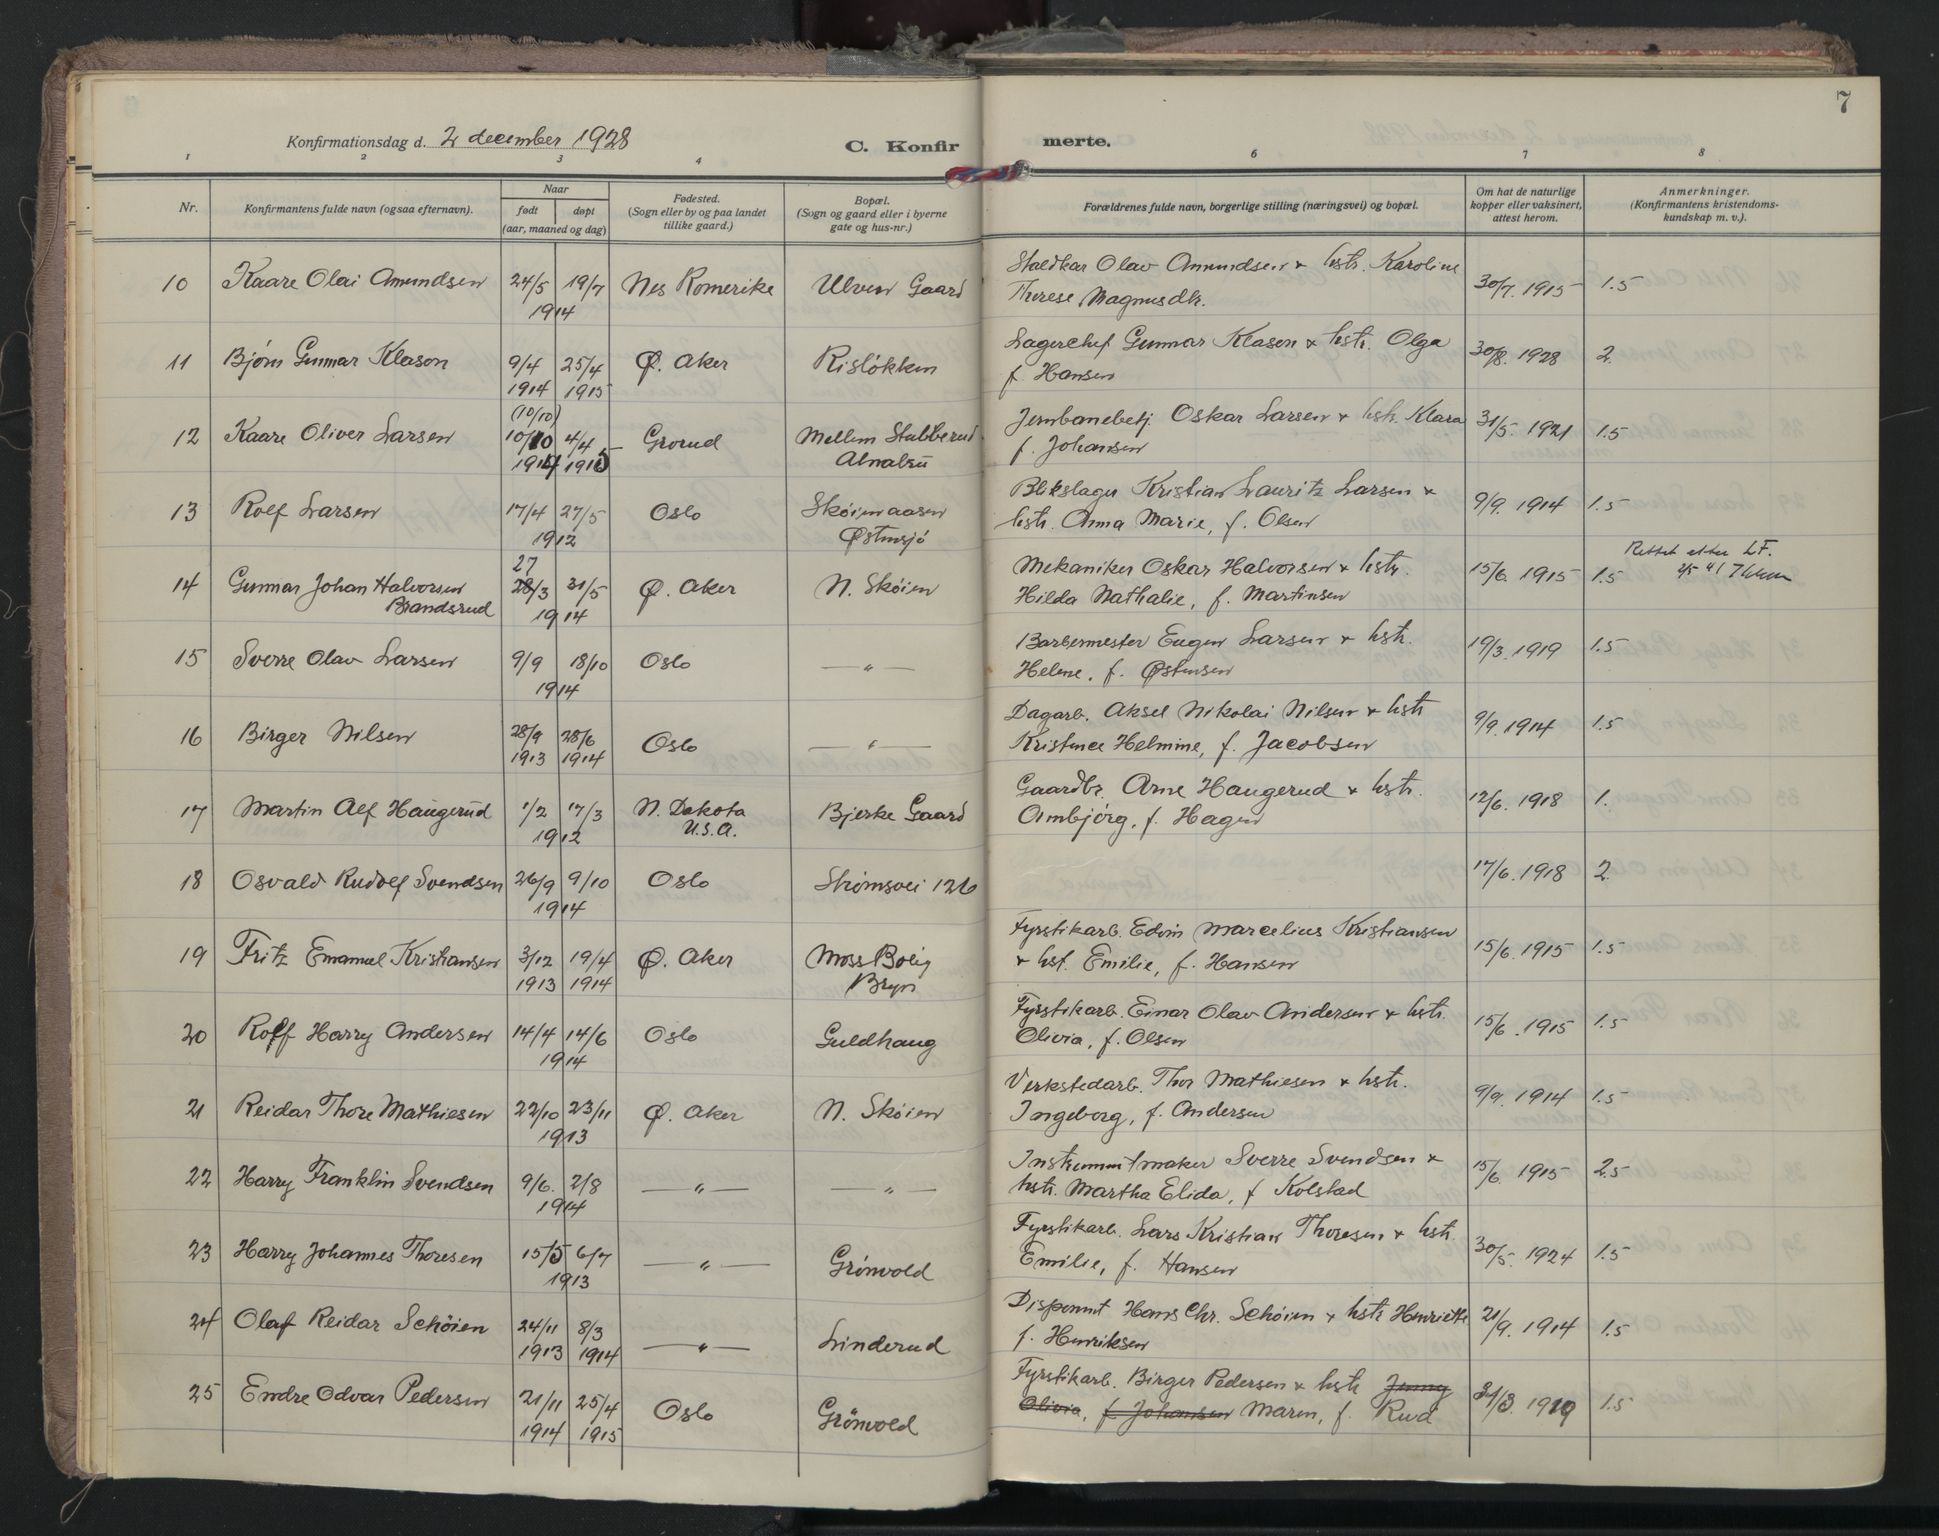 7
Konfirmationsdag d. 2 december 1928
C. Konfirmerte.
1 2 3 4 6 7 8
Nr.
Konfirmantens fulde navn (ogsaa efternavn).
Naar
født døpt
(aar, maaned og dag)
Fødested.
(Sogn eller by og paa landet
tillike gaard.)
Bopæl.
(Sogn og gaard eller i byerne
gate og hus-nr.)
Forældrenes fulde navn, borgerlige stilling (næringsvei) og bopæl.
Om hat de naturlige
kopper eller vaksinert,
attest herom.
Anmerkninger.
(Konfirmantens kristendoms-
kundskap m. v.).
10 Kaare Olai Amundsen 24/5 19/7 Nes Romerike Ulven Gaard
1914
Staldkar Olav Amundsen & hstr. Karoline
Therese Magnusdtr. 30/7. 1915 1.5
11 Bjørn Gunnar Klason 9/4 25/4 Ø. Aker Risløkken
1914 1915
Lagerchef Gunnar Klason & hstr. Olga
f. Hansen 30/8. 1928 2.
(10/10)
12 Kaare Oliver Larsen 10/10 4/4 Grorud Mellem Stubberud
1914 1915 Alnabru
Jernbanebetj. Oskar Larsen & hstr. Klara
f. Johansen 31/5. 1921 1.5
13 Rolf Larsen 17/4 27/5 Oslo Skøienaasen
1912 Østensjø
Blikslager Kristian Lauritz Larsen &
hstr. Anna Marie, f. Olsen 9/9. 1914 1.5
27
14 Gunnar Johan Halvorsen 28/3 31/5 Ø. Aker N. Skøien
Brandsrud 1914
Mekaniker Oskar Halvorsen & hstr.
Hilda Nathalie, f. Martinsen 15/6. 1915 1.5
Rettet etter LF.
15 Sverre Olav Larsen 9/9 18/10 Oslo —〃—
1914
Barbermester Eugen Larsen & hstr.
Helene, f. Østensen 19/3. 1919 1.5
16 Birger Nilsen 28/9 28/6 Oslo —〃—
1913 1914
Dagarb. Aksel Nikolai Nilsen & hstr
Kristence Helmine, f. Jacobsen 9/9. 1914 1.5
17 Martin Alf Haugerud 1/2 17/3 N. Dakota Bjerke Gaard
1912 U.S.A.
Gaardbr. Arne Haugerud & hstr.
Ambjørg, f. Hagen 12/6. 1918 1.
18 Osvald Rudolf Svendsen 26/9 9/10 Oslo Strømsvei 126
1914
17/6. 1918 2.
19 Fritz Emanuel Kristiansen 3/12 19/4 Ø. Aker Moss Bolig
1913 1914 Bryn
Fyrstikarb. Edvin Marcelius Kristiansen
& hst. Emilie, f. Hansen 15/6. 1915 1.5
20 Rolf Harry Andersen 14/4 14/6 Oslo Guldhaug
1914
Fyrstikarb. Einar Olav Andersen & hstr.
Olivia, f. Olsen 15/6. 1915 1.5
21 Reidar Thore Mathiesen 22/10 23/11 Ø. Aker N. Skøien
1913
Verkstedarb. Thor Mathiesen & hstr.
Ingeborg, f. Andersen 9/9. 1914 1.5
22 Harry Franklin Svendsen 9/6. 2/8 —〃— —〃—
1914
Instrumentmaker Sverre Svendsen &
hstr. Martha Elida, f. Kolstad 15/6. 1915 2.5
23 Harry Johannes Thoresen 15/5 6/7 —〃— Grønvold
1913
Fyrstikarb. Lars Kristian Thoresen & hstr.
Emilie, f. Hansen 30/5. 1924 1.5
24 Olaf Reidar Schøien 24/11 8/3 —〃— Linderud
1913 1914
Disponent Hans Chr. Schøien & hstr Henriette
f. Henriksen 21/9. 1914 1.5
25 Endre Odvar Pedersen 21/11 25/4 Oslo Grønvold
1914 1915
Fyrstikarb. Birger Pedersen & hstr Jenny
Olivia, f. Johansen Maren, f. Rud 31/3. 1919 1.5